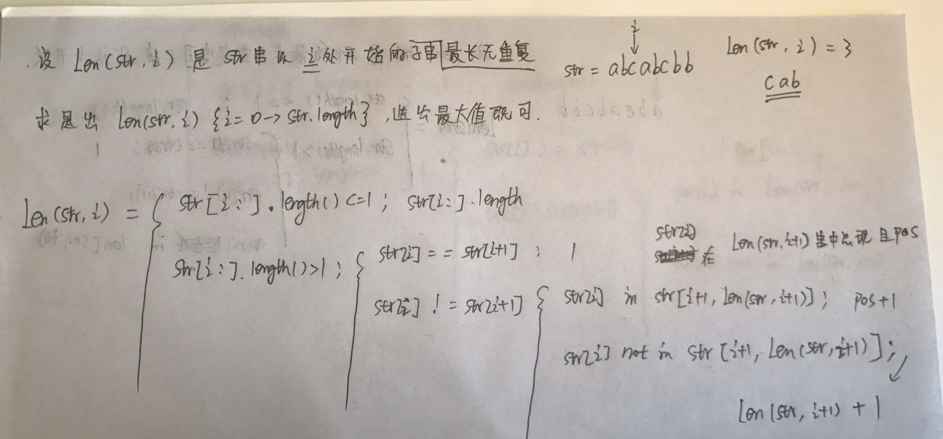 设 Len(str, i) 是 str串以 i 处开始的子串最长无重复
i
str = abcabcbb
Len(str, i) = 3
cab
求是出 Len(str, i) {i = 0 -> str.length}, 选出最大值既可.
Len(str, i) =
str[i:].length() <= 1; str[i:].length
str[i:].length() > 1;
str[i] == str[i+1]; 1
str[i] 在 Len(str, i+1) 串中出现且pos
str[i] != str[i+1]
str[i] in str[i+1, Len(str, i+1)]; pos+1
str[i] not in str[i+1, Len(str, i+1)];
Len(str, i+1) + 1